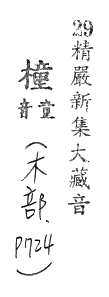 29精嚴新集大藏音
橦童音(木部.P724)